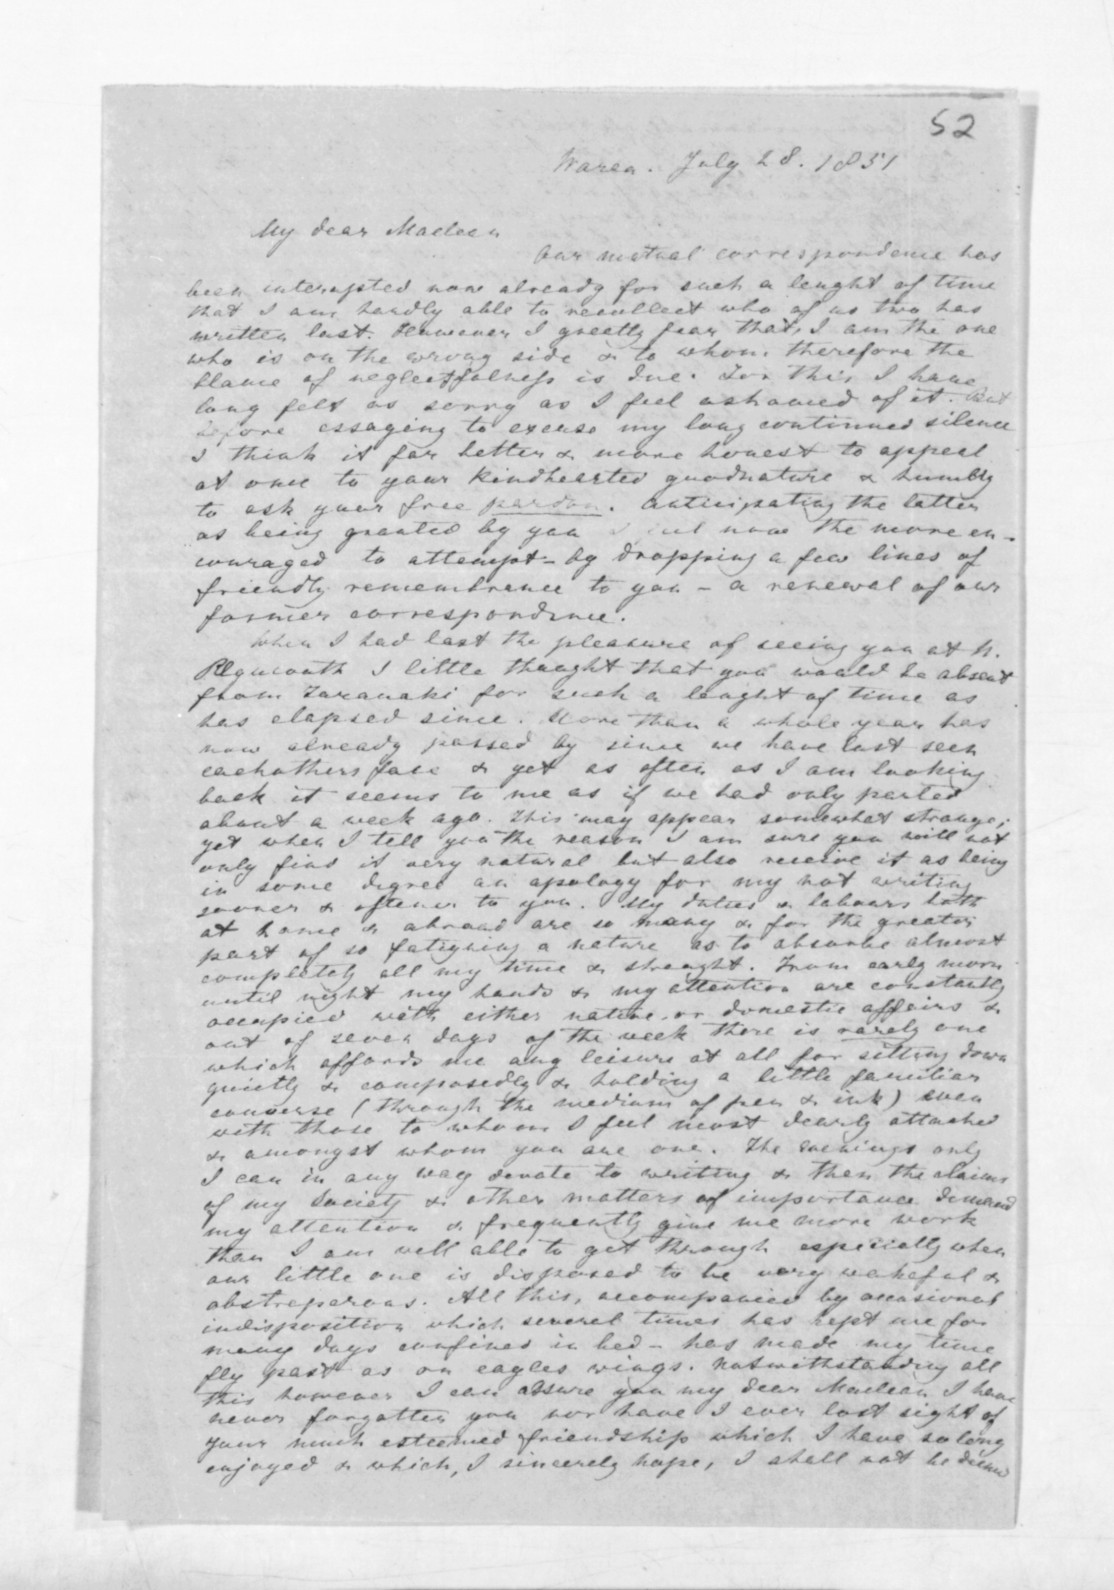 52
Warea. July 28. 1851
My dear Maclean
Our mutual correspondence has
been interupted now already for such a lenght of time
that I am hardly able to recollect who of us two has
written last. However I greatly fear that, I am the one
who is on the wrong side & to whom therefore the
blame of neglectfulness is due. For this I have
long felt as sorry as I feel ashamed of it. But
before essaying to excuse my long continued silence
I think it far better & more honest to appeal
at once to your kindhearted goodnature & humbly
to ask your free pardon. Anticipating the latter
as being granted by you I feel now the more en-
couraged to attempt - by dropping a few lines of
friendly remembrance to you - a renewal of our
former correspondence.
When I had last the pleasure of seeing you at N.
Plymouth I little thought that you would be absent
from Taranaki for such a lenght of time as
has elapsed since. More than a whole year has
now already passed by since we have last seen
eachothers face & yet as often as I am looking
back it seems to me as if we had only parted
about a week ago. This may appear somewhat strange;
yet when I tell you the reason I am sure you will not
only find it very natural but also receive it as being
in some degree an apology for my not writing
sooner & oftener to you. My duties & labours both
at home & abroad are so many & for the greater
part of so fatiguing a nature as to absorbe almost
completely all my time & strenght. From early morn
until night my hands & my attention are constantly
occupied with either native or domestic affairs &
out of seven days of the week there is rarely one
which affords me any leisure at all for sitting down
quietly & composedly & holding a little familiar
converse (through the medium of pen & ink) even
with those to whom I feel most dearly attached
& amongst whom you are one. The evenings only
I can in any way devote to writing & then the claims
of my Society & other matters of importance demand
my attention & frequently give me more work
than I am well able to get through especially when
our little one is disposed to be very wakeful &
obstreperous. All this, accompanied by occasional
indisposition which several times has kept me for
many days confined in bed - has made my time
fly past as on eagles wings. Notwithstanding all
this however I can assure you my dear Maclean I have
never forgotten you nor have I ever lost sight of
your much esteemed friendship which I have so long
enjoyed & which, I sincerely hope, I shall not be